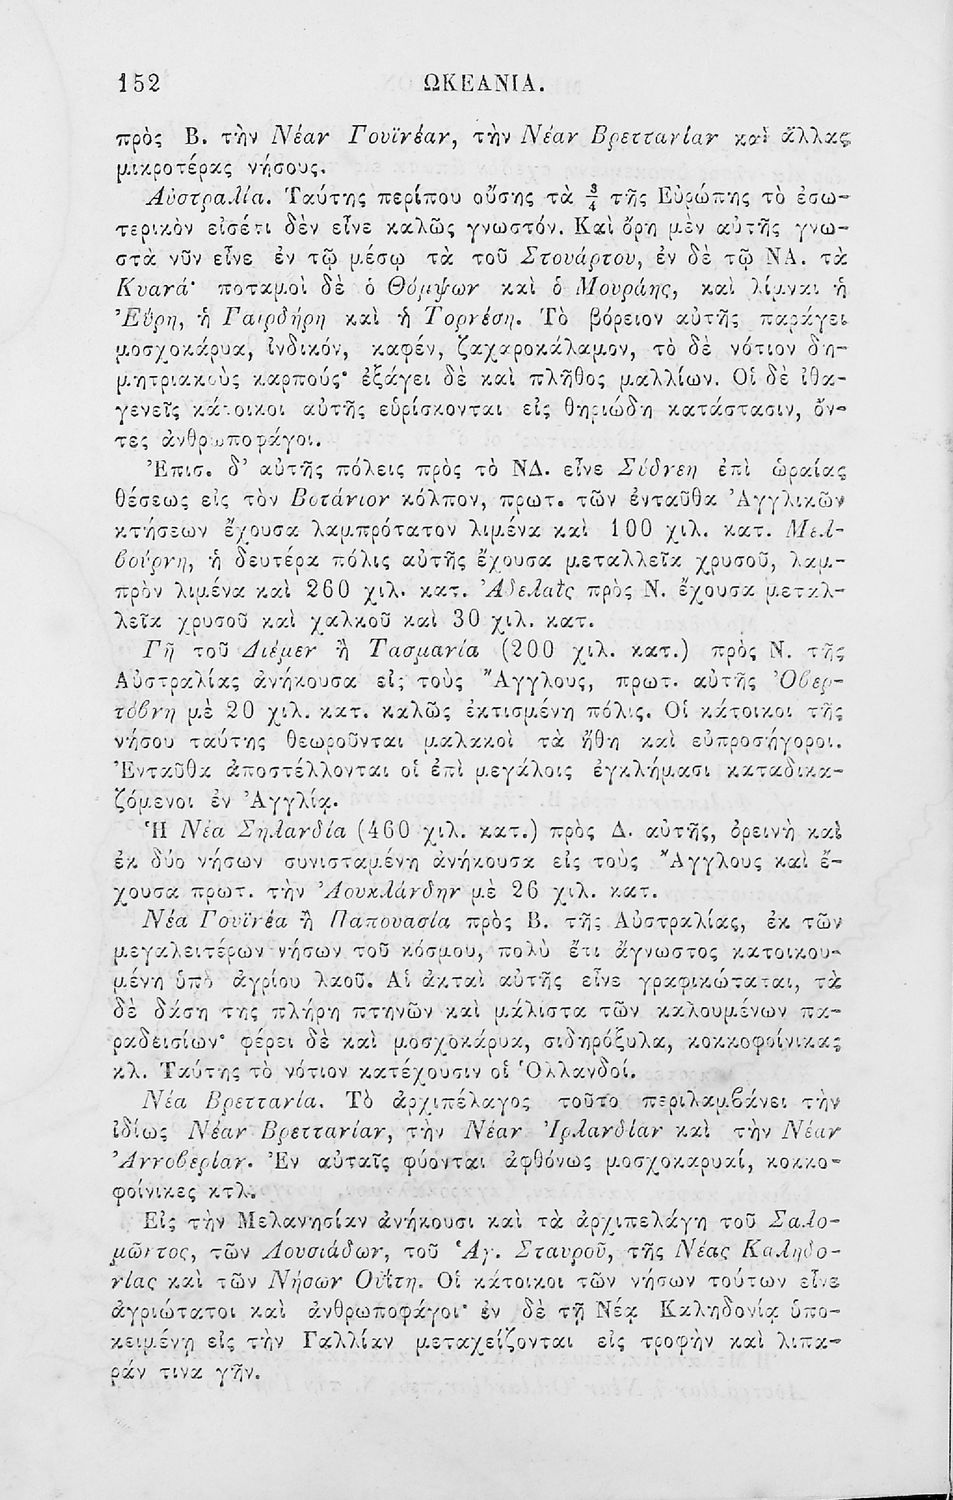 152 ΩΚΕΑΝΙΑ.
πρὸς Β. τὴν Νέαν Γουϊνέαν, τὴν Νέαν Βρεττανίαν καὶ ἄλλας
μικροτέρας νήσους.
Αὐστραλία. Ταύτης περίπου οὔσης τὰ ¾ τῆς Εὐρώπης τὸ ἐσω-
τερικὸν εἰσέτι δὲν εἶνε καλῶς γνωστόν. Καὶ ὄρη μὲν αὐτῆς γνω-
στὰ νῦν εἶνε ἐν τῷ μέσῳ τὰ τοῦ Στουάρτου, ἐν δὲ τῷ ΝΑ. τὰ
Κυανᾶ· ποταμοὶ δὲ ὁ Θόμψων καὶ ὁ Μουράης, καὶ λίμναι ἡ
Ἐΰρη, ἡ Γαιρδήρη καὶ ἡ Τορνέση. Τὸ βόρειον αὐτῆς παράγει
μοσχοκάρυα, ἰνδικόν, καφέν, ζαχαροκάλαμον, τὸ δὲ νότιον δη-
μητριακοὺς καρπούς· ἐξάγει δὲ καὶ πλῆθος μαλλίων. Οἱ δὲ ἰθα-
γενεῖς κάτοικοι αὐτῆς εὑρίσκονται εἰς θηριώδη κατάστασιν, ὄν-
τες ἀνθρωποφάγοι.
Ἐπισ. δ' αὐτῆς πόλεις πρὸς τὸ ΝΔ. εἶνε Σύδνεη ἐπὶ ὡραίας
θέσεως εἰς τὸν Βοτάνιον κόλπον, πρωτ. τῶν ἐνταῦθα Ἀγγλικῶν
κτήσεων ἔχουσα λαμπρότατον λιμένα καὶ 100 χιλ. κατ. Μελ-
βούρνη, ἡ δευτέρα πόλις αὐτῆς ἔχουσα μεταλλεῖα χρυσοῦ, λαμ-
πρὸν λιμένα καὶ 260 χιλ. κατ. Ἀδελαῒς πρὸς Ν. ἔχουσα μεταλ-
λεῖα χρυσοῦ καὶ χαλκοῦ καὶ 30 χιλ. κατ.
Γῆ τοῦ Διέμεν ἢ Τασμανία (200 χιλ. κατ.) πρὸς Ν. τῆς
Αὐστραλίας ἀνήκουσα εἰς τοὺς Ἄγγλους, πρωτ. αὐτῆς Ὀβερ-
τόβνη μὲ 20 χιλ. κατ. καλῶς ἐκτισμένη πόλις. Οἱ κάτοικοι τῆς
νήσου ταύτης θεωροῦνται μαλακοὶ τὰ ἤθη καὶ εὐπροσήγοροι.
Ἐνταῦθα ἀποστέλλονται οἱ ἐπὶ μεγάλοις ἐγκλήμασι καταδικα-
ζόμενοι ἐν Ἀγγλίᾳ.
Ἡ Νέα Σηλανδία (460 χιλ. κατ.) πρὸς Δ. αὐτῆς, ὀρεινὴ καὶ
ἐκ δύο νήσων συνισταμένη ἀνήκουσα εἰς τοὺς Ἄγγλους καὶ ἔ-
χουσα πρωτ. τὴν Ἀουκλάνδην μὲ 26 χιλ. κατ.
Νέα Γουϊνέα ἢ Παπουασία πρὸς Β. τῆς Αὐστραλίας, ἐκ τῶν
μεγαλειτέρων νήσων τοῦ κόσμου, πολὺ ἔτι ἄγνωστος κατοικου-
μένη ὑπὸ ἀγρίου λαοῦ. Αἱ ἀκταὶ αὐτῆς εἶνε γραφικώταται, τὰ
δὲ δάση της πλήρη πτηνῶν καὶ μάλιστα τῶν καλουμένων πα-
ραδεισίων· φέρει δὲ καὶ μοσχοκάρυα, σιδηρόξυλα, κοκκοφοίνικας
κλ. Ταύτης τὸ νότιον κατέχουσιν οἱ Ὁλλανδοί.
Νέα Βρεττανία. Τὸ ἀρχιπέλαγος τοῦτο περιλαμβάνει τὴν
ἰδίως Νέαν Βρεττανίαν, τὴν Νέαν Ἰρλανδίαν καὶ τὴν Νέαν
Ἀννοβερίαν. Ἐν αὐταῖς φύονται ἀφθόνως μοσχοκαρυαί, κοκκο-
φοίνικες κτλ.
Εἰς τὴν Μελανησίαν ἀνήκουσι καὶ τὰ ἀρχιπελάγη τοῦ Σαλο-
μῶντος, τῶν Λουσιάδων, τοῦ Ἁγ. Σταυροῦ, τῆς Νέας Καληδο-
νίας καὶ τῶν Νήσων Οὐΐτη. Οἱ κάτοικοι τῶν νήσων τούτων εἶνε
ἀγριώτατοι καὶ ἀνθρωποφάγοι· ἐν δὲ τῇ Νέᾳ Καληδονίᾳ ὑπο-
κειμένῃ εἰς τὴν Γαλλίαν μεταχείζονται εἰς τροφὴν καὶ λιπα-
ράν τινα γῆν.